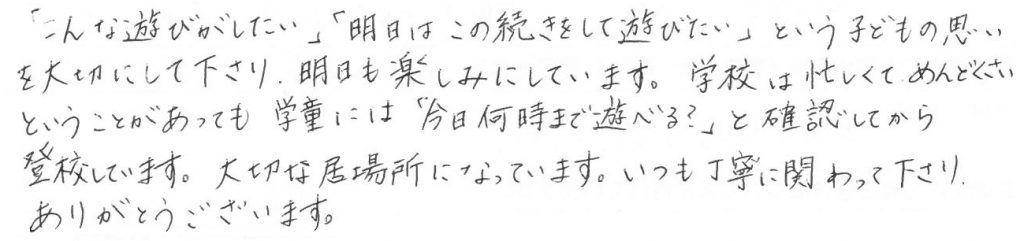 「こんな遊びがしたい」「明日はこの続きをして遊びたい」という子どもの思い
を大切にして下さり、明日も楽しみにしています。学校は忙しくて、めんどくさい
ということがあっても学童には「今日何時まで遊べる?」と確認してから
登校しています。大切な居場所になっています。いつも丁寧に関わって下さり、
ありがとうございます。